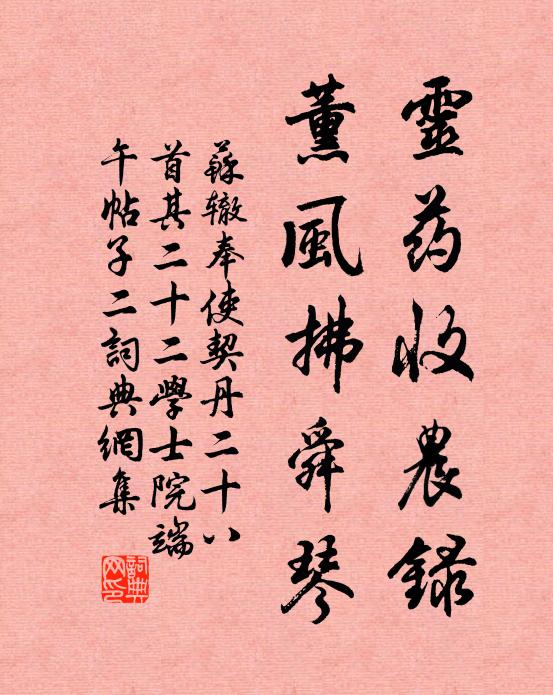 靈药收農録
薰風拂舜琴
蘇辙奉使契丹二十八
首其二十二學士院端
午帖子二詞典網集
詞典
网印